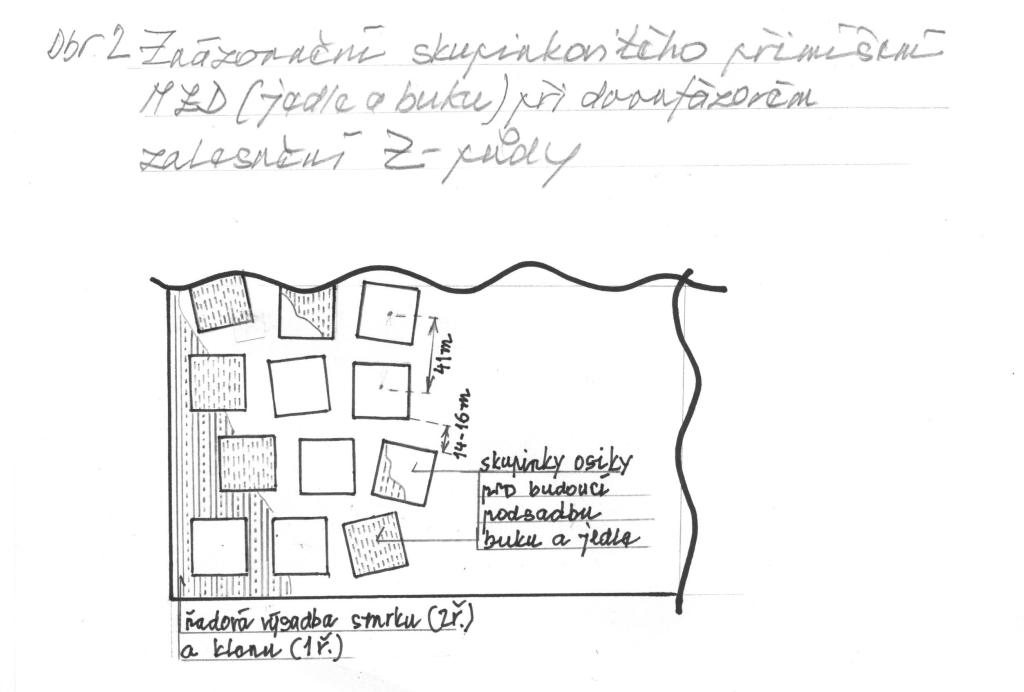 Obr. 2 Znázornění skupinkovitého přimíšení
MZD (jedle a buku) při dvoufázovém
zalesnění Z-půdy
41m
14-16m
skupinky osiky
pro budoucí
podsadbu
buku a jedle
řadová výsadba smrku (2ř.)
a klonu (1ř.)